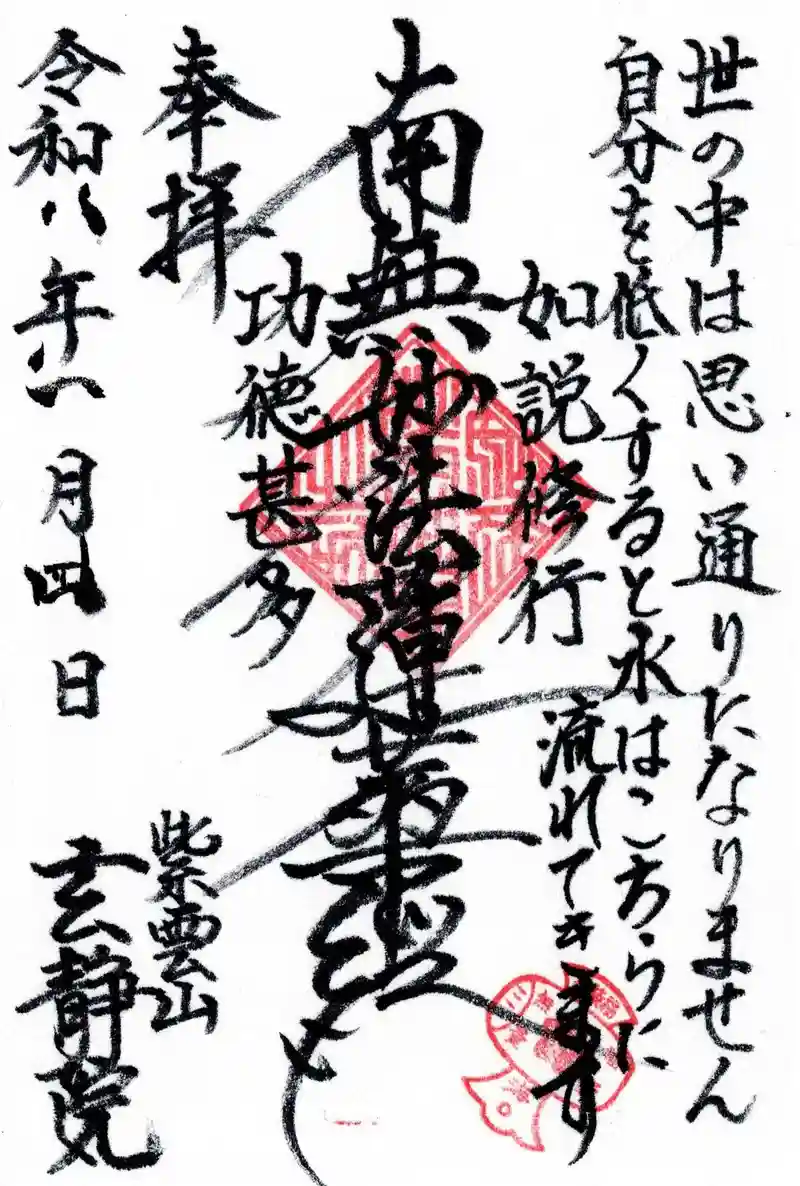 世の中は思い通りになりません
自分を低くすると水はこちらに
流れてきます
如説修行
南無妙法蓮華経
功徳甚多
奉拝
紫雲山
玄静院
令和八年一月四日